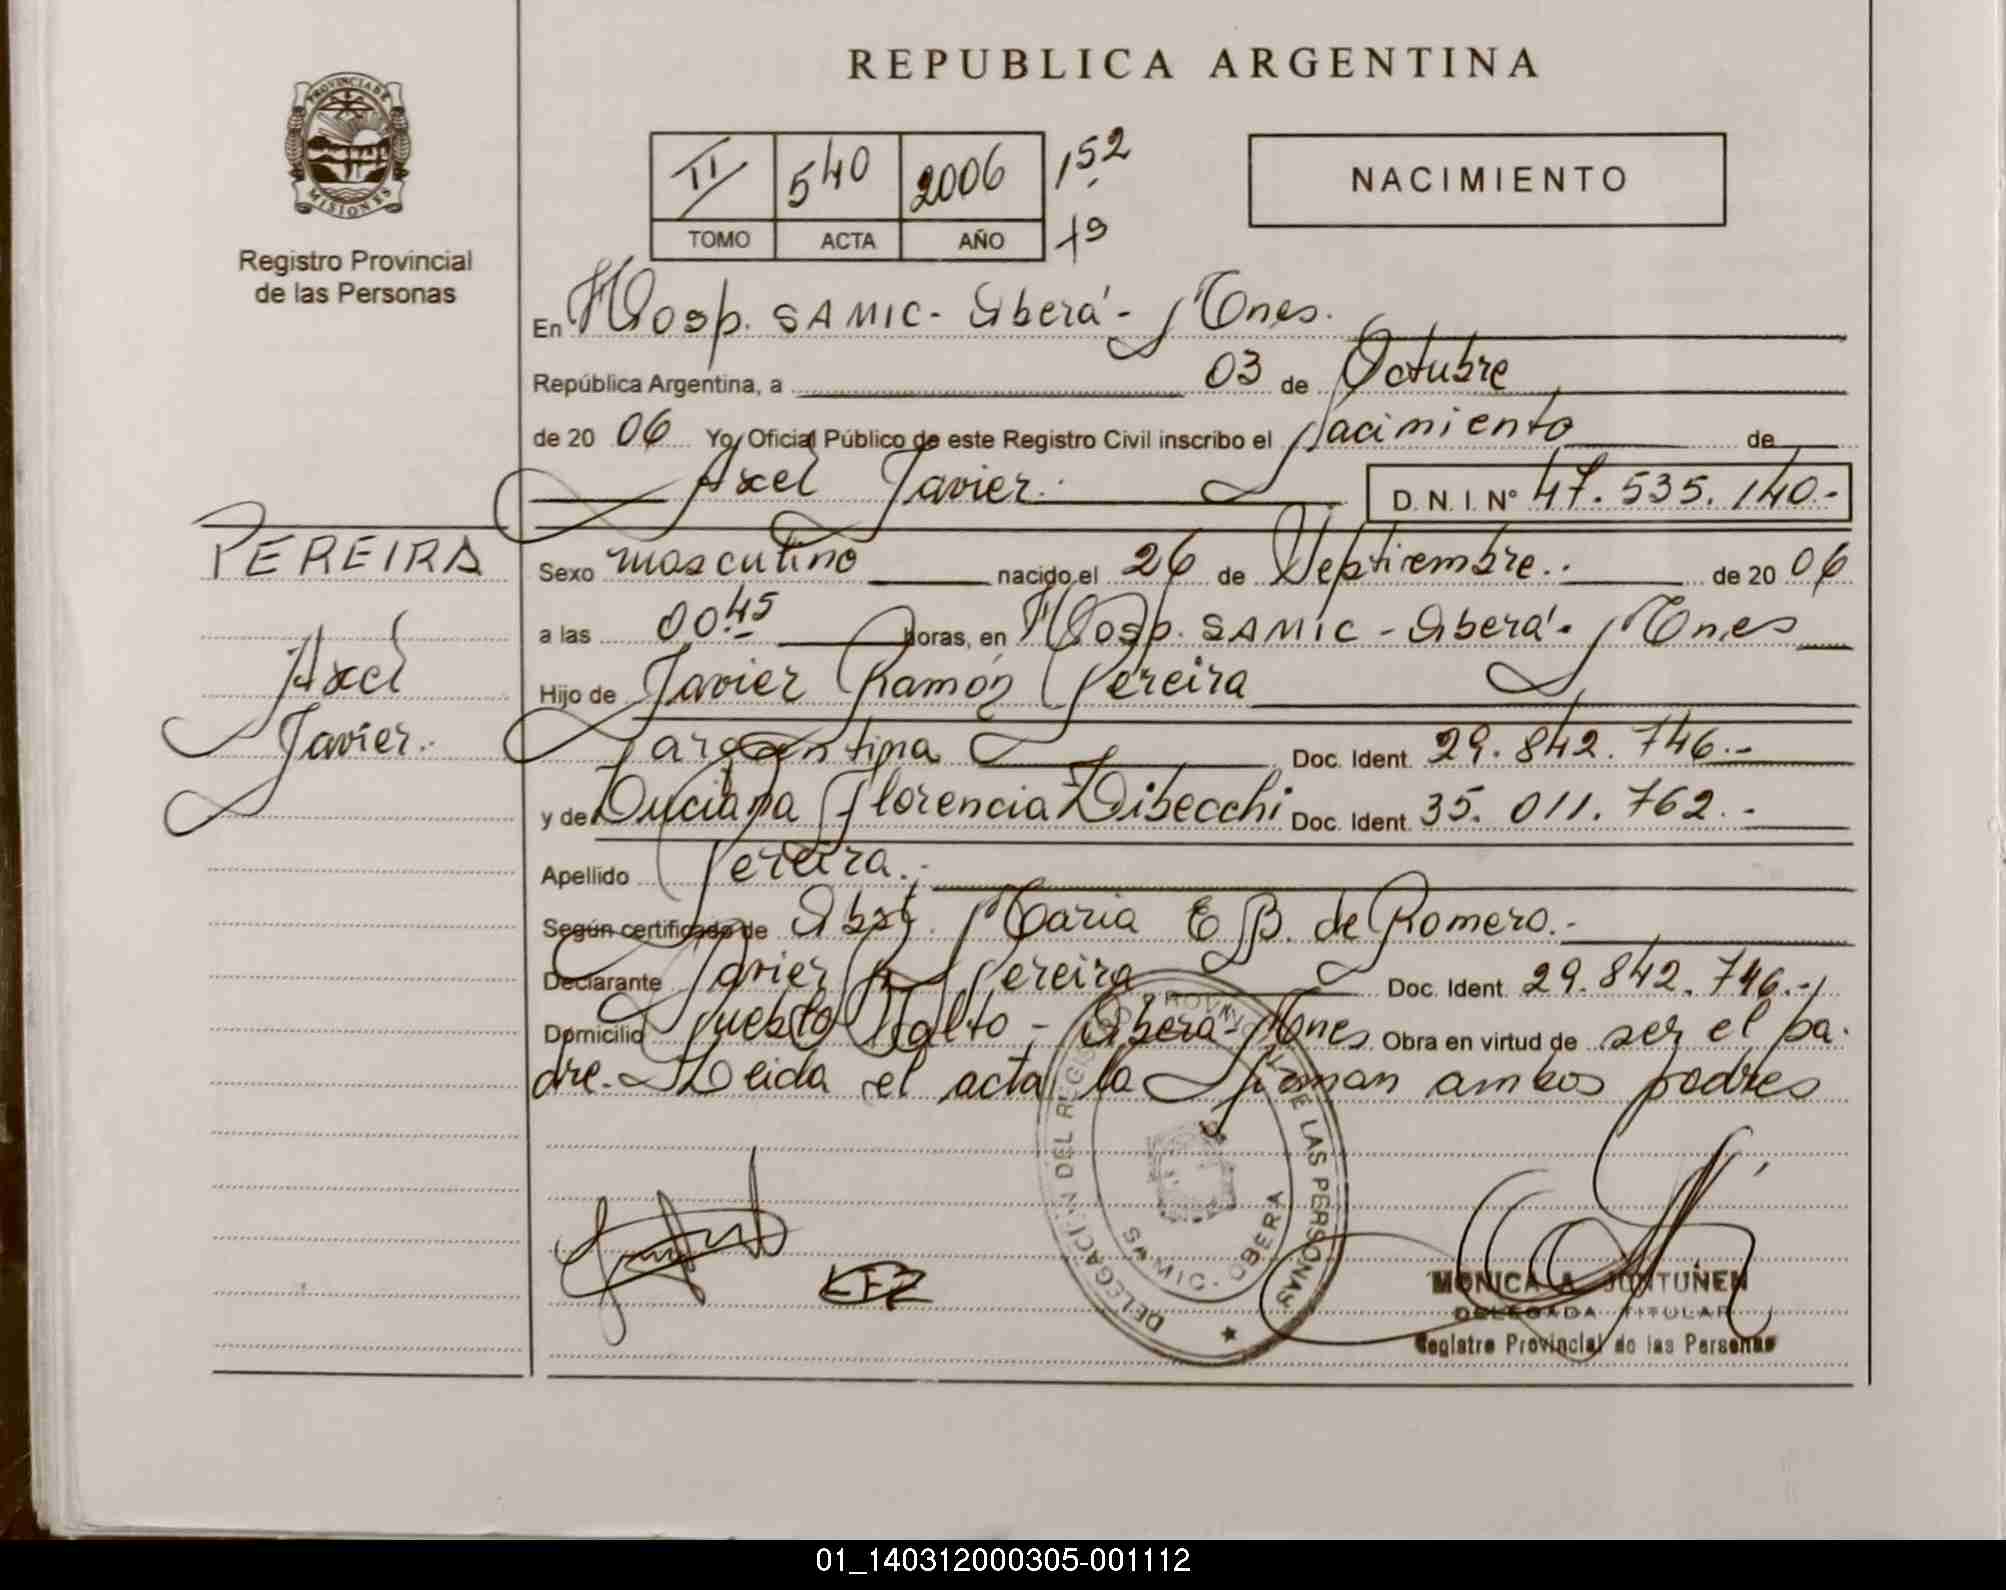 REPUBLICA ARGENTINA
PROVINCIA DE
MISIONES
Registro Provincial
de las Personas
II 540 2006 152
TOMO ACTA AÑO 79
NACIMIENTO
En Hosp. SAMIC - Oberá - Mnes.
República Argentina, a 03 de Octubre
de 20 06 Yo, Oficial Público de este Registro Civil inscribo el Nacimiento de
Axel Javier.- D. N. I. N° 47.535.140.-
PEREIRA
Axel
Javier.-
Sexo masculino nacido el 26 de Septiembre.- de 20 06
a las 00:45 horas, en Hosp. SAMIC - Oberá - Mnes
Hijo de Javier Ramón Pereira
argentina Doc. Ident. 29.842.746.-
y de Luciana Florencia Zibecchi Doc. Ident. 35.011.762.-
Apellido Pereira.-
Según certificado de Obst. Maria E B. de Romero.-
Declarante Javier R Pereira Doc. Ident. 29.842.746.-
Domicilio Pueblo Salto - Oberá - Mnes Obra en virtud de ser el pa-
dre.- Leida el acta la firman ambos padres
DELEGACION DEL REGISTRO PROVINCIAL DE LAS PERSONAS
SAMIC - OBERA
LFZ
MONICA A. JUNTUNEN
DELEGADA TITULAR
Registro Provincial de las Personas
01_140312000305-001112